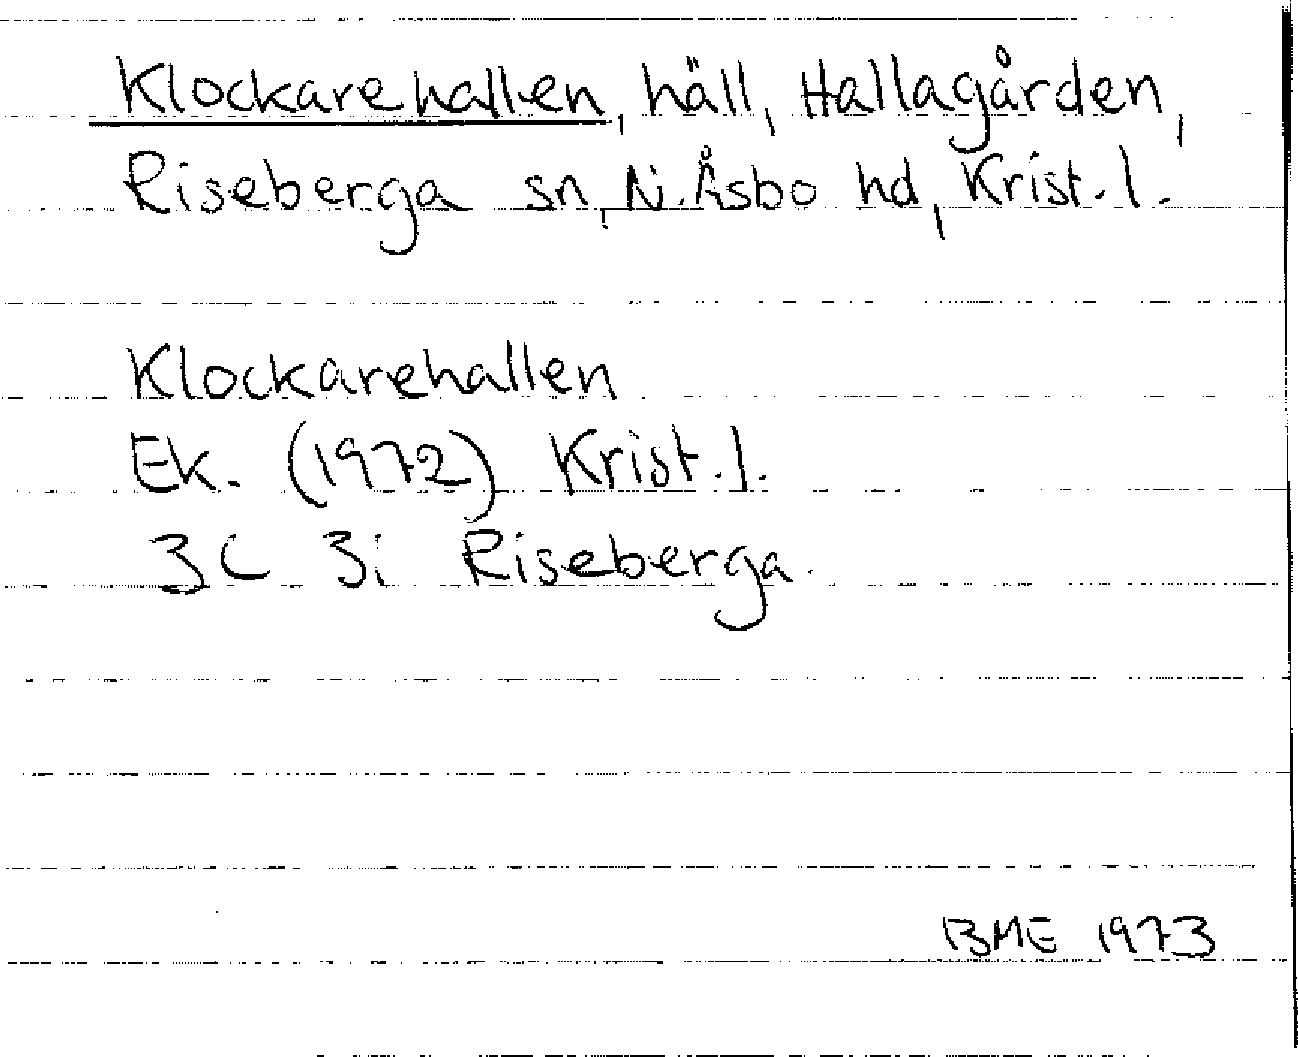 Klockarehallen, häll, Hallagården,
Riseberga sn, N. Åsbo hd, Krist. l.
Klockarehallen
Ek. (1972) Krist. l.
3C 3i Riseberga.
BME 1973